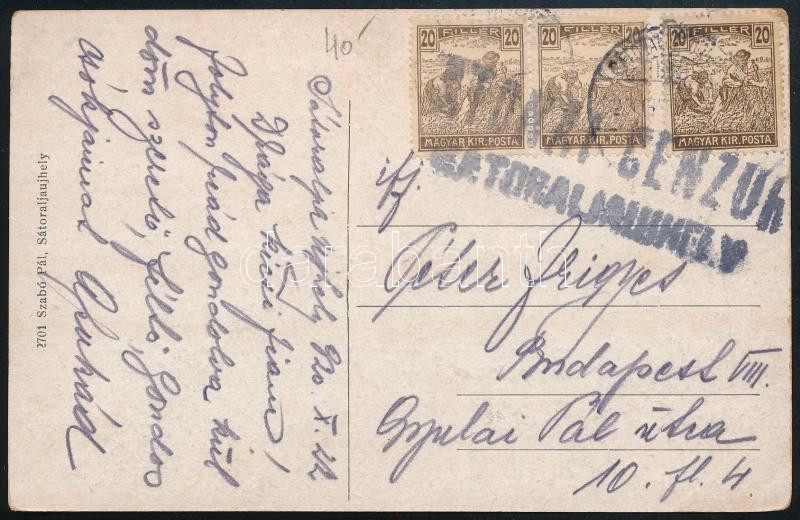 40
Sátoraljaújhely, 920. X. 22.
Drága kicsi fiam!
Folyton reád gondolva kül
döm szerető, féltő, gondos
csókjaimat Apukád
2701 Szabó Pál, Sátoraljaujhely
20 FILLÉR 20
MAGYAR KIR. POSTA
20 FILLÉR 20
MAGYAR KIR. POSTA
20 FILLÉR 20
MAGYAR KIR. POSTA
CENZUR
SÁTORALJAUJHELY
ifj.
Péter Frigyes
Budapest VIII.
Gyulai Pál utca
10. fl. 4.
darabanth